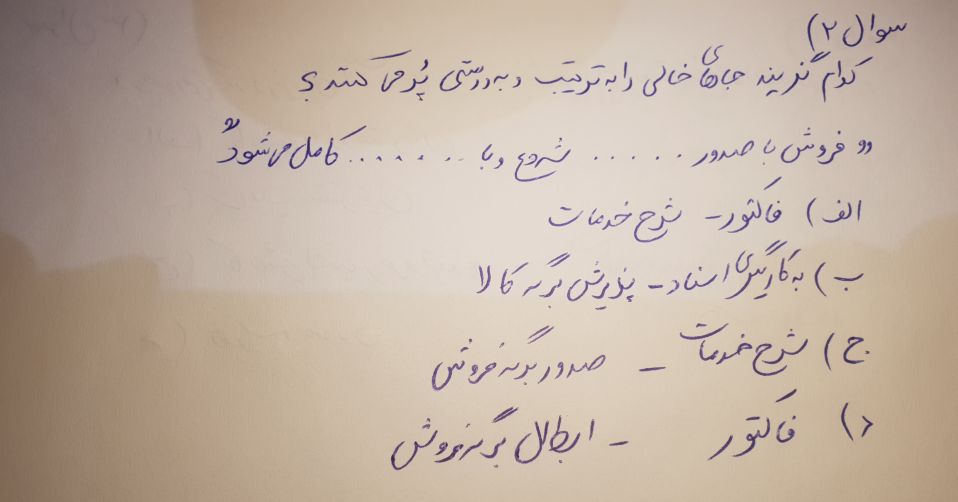 سوال ۲)
کدام گزینه جاهای خالی را به ترتیب و به درستی پُر می کند؟
"فروش با صدور ..... شروع و با ........ کامل می شود"
الف) فاکتور - شرح خدمات
ب) به کارگیری اسناد - پذیرش برگه کالا
ج) شرح خدمات - صدور برگه فروش
د) فاکتور - ابطال برگه فروش